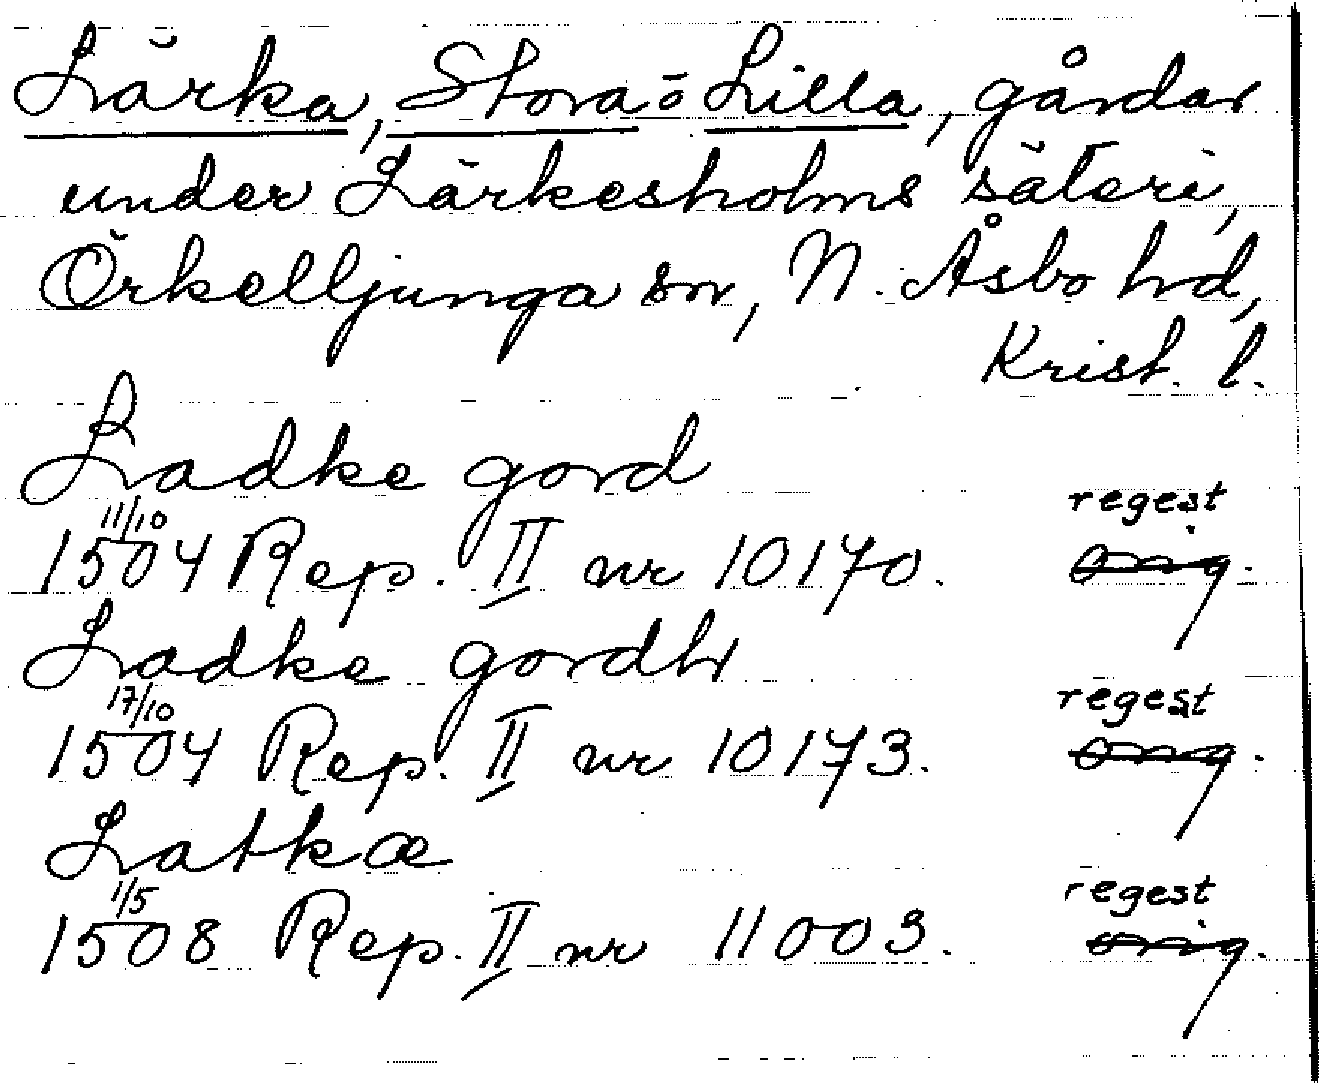 Lärka, Stora o Lilla, gårdar
under Lärkesholms säteri,
Örkelljunga sn, N. Åsbo hd,
Krist. l.
Ladke gord
11/10 regest
1504 Rep. II nr 10170. orig.
Ladke gordh
17/10 regest
1504 Rep. II nr 10173. orig.
Latkæ
1/5 regest
1508 Rep. II nr 11003. orig.